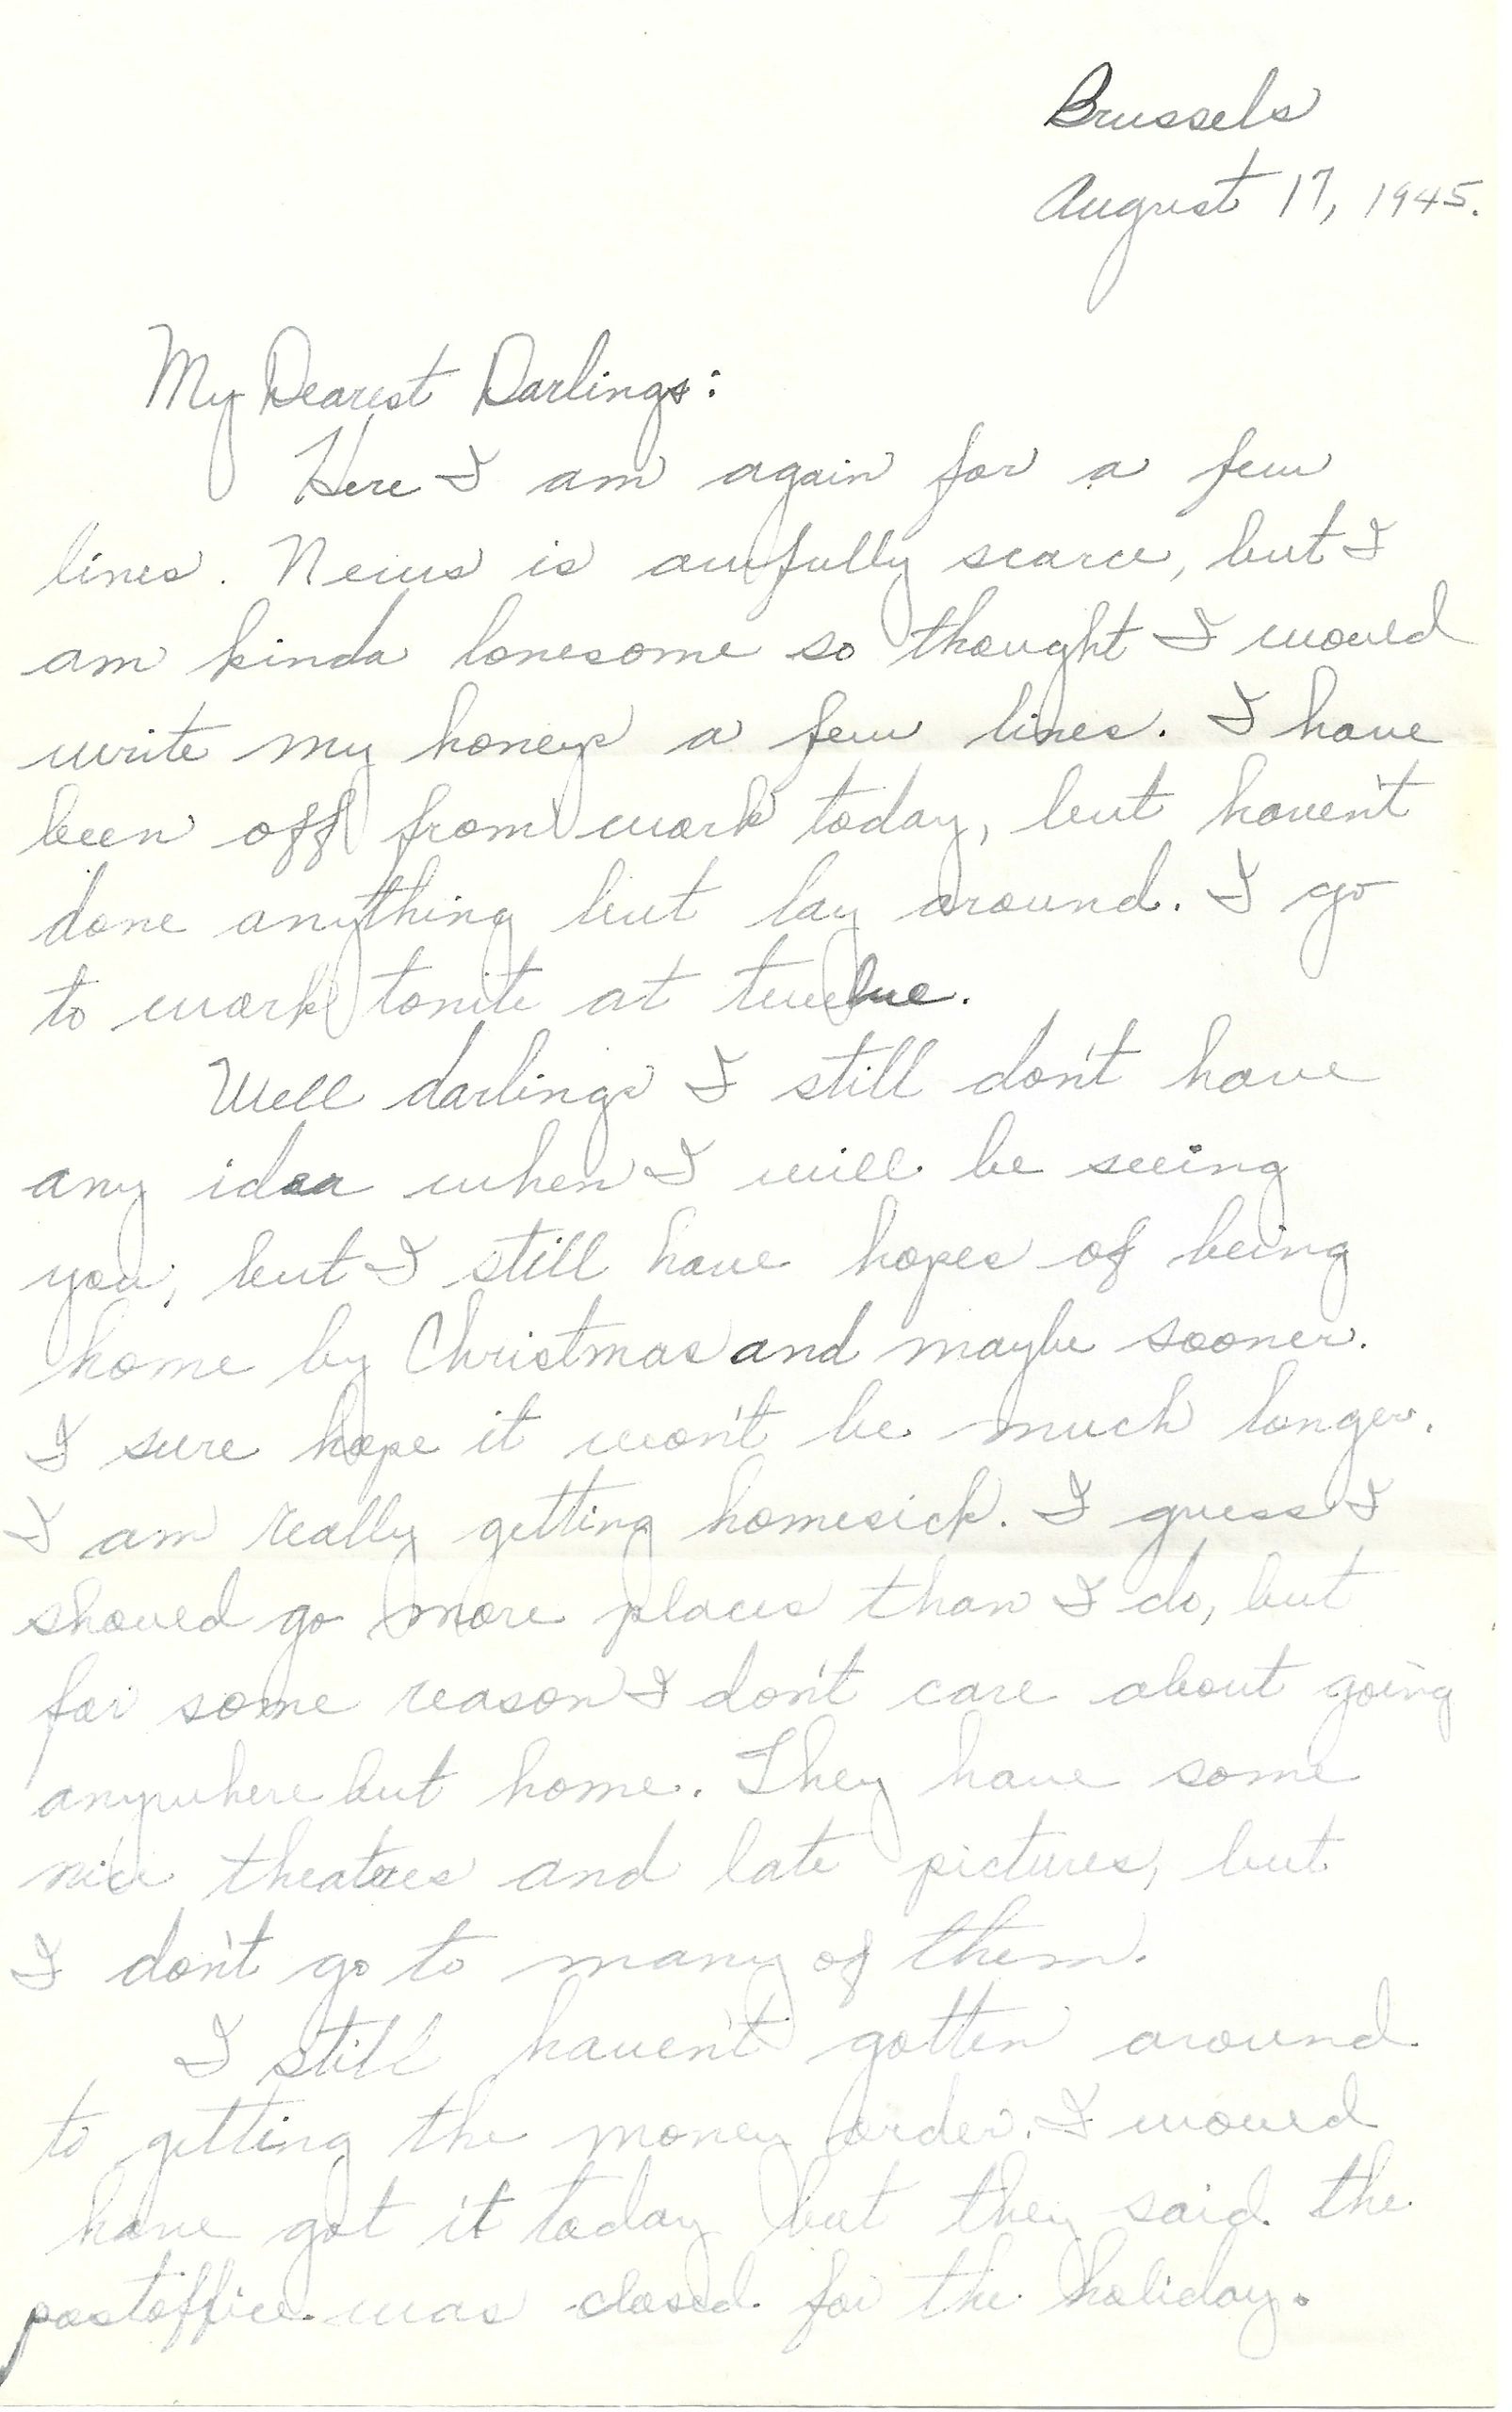 Brussels
August 17, 1945.
My Dearest Darlings:
Here I am again for a few
lines. News is awfully scarce, but I
am kinda lonesome so thought I would
write my honeys a few lines. I have
been off from work today, but haven't
done anything but lay around. I go
to work tonite at twelve.
Well darlings I still don't have
any idea when I will be seeing
you, but I still have hopes of being
home by Christmas and maybe sooner.
I sure hope it won't be much longer.
I am really getting homesick. I guess I
should go more places than I do, but
for some reason I don't care about going
anywhere but home. They have some
nice theatres and late pictures, but
I don't go to many of them.
I still haven't gotten around
to getting the money order. I would
have got it today but they said the
postoffice was closed for the holiday.